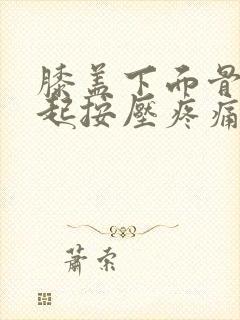 膝盖下面骨
起按壓疼痛
蕭索